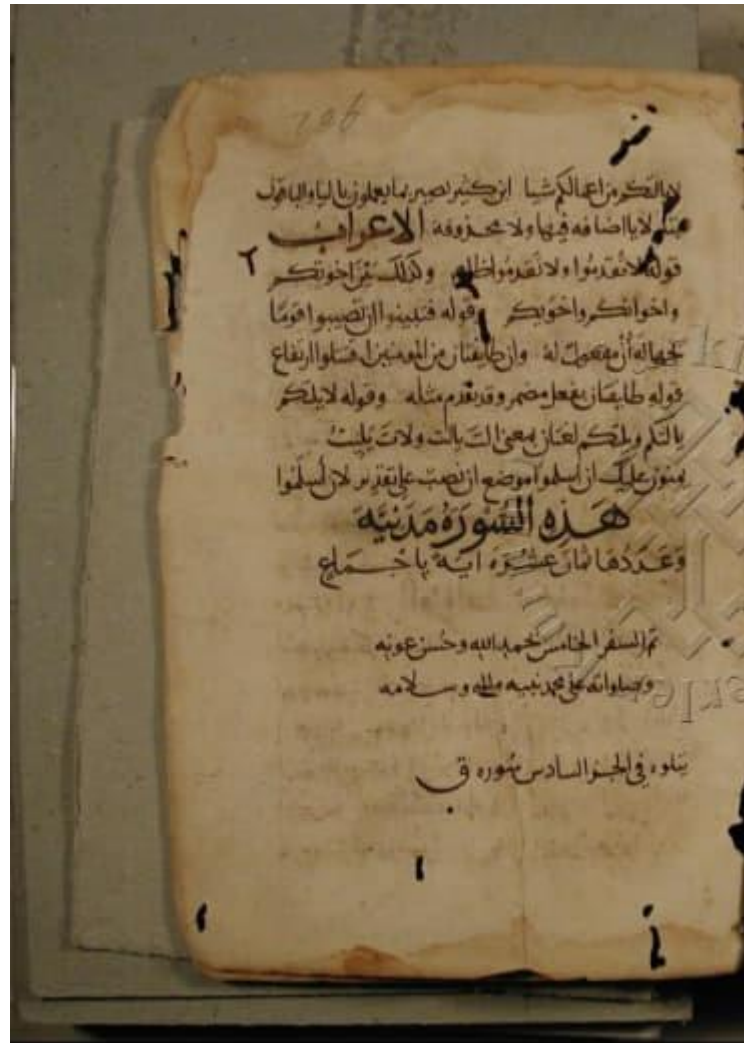 206
لا يالتكم من اعمالكم شيا ابن كثير بصير بما يعملون باليا والباقون
بتا لا يااضافه فيها ولا محذوفة الاعراب
قوله لا تُقدمُوا ولا تَقدموا وكذلك اخوتكم
واخوانكم واخويكم وقوله فتبينوا ان تصيبوا قومًا
بجهاله أنْ مفعول له وان طايفتان من المومنين اقتتلوا ارتفاع
قوله طايفتان بفعل مضمر وقد تقدم مثله وقوله لا يلتكم
يالتكم ويلتكم لغتان بمعنى الت يالت ولات يليتُ
يمنون عليك ان اسلموا موضع ان نصب على تقدير لان أسلمُوا
هَذِه السُّورَةُ مَدَنيَّه
وَعَدَدُهَا ثمان عَشْرَه ايَة بِاجْمَاعٍ
تم السفر الخامس بحمد الله وحُسن عونه
وصلواته على محمد نبيه واله وسلامه
يتلوه في الجز السادس سُوره ق